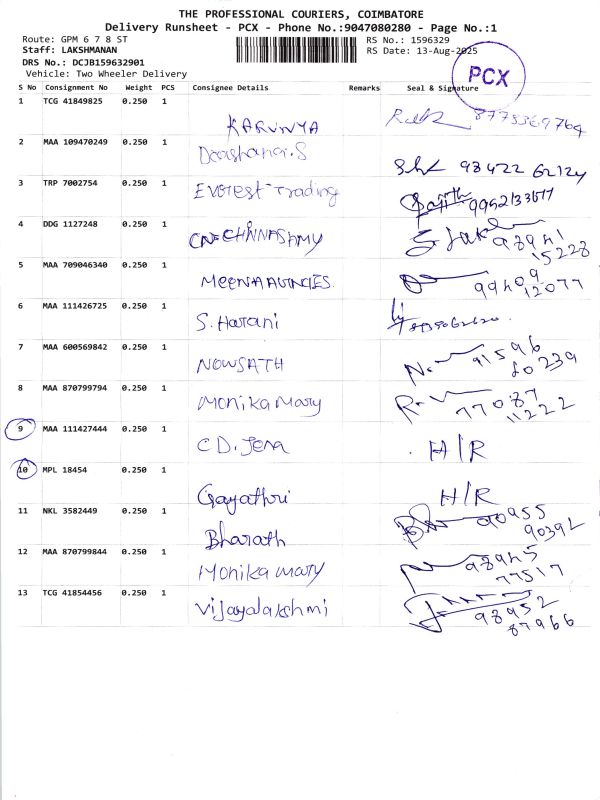 THE PROFESSIONAL COURIERS, COIMBATORE
Delivery Runsheet - PCX - Phone No.:9047080280 - Page No.:1
Route: GPM 6 7 8 ST
RS No.: 1596329
Staff: LAKSHMANAN
RS Date: 13-Aug-2025
DRS No.: DCJB159632901
Vehicle: Two Wheeler Delivery
PCX
S No Consignment No Weight PCS Consignee Details Remarks Seal & Signature
1 TCG 41849825 0.250 1
KARUNYA 8775369764
2 MAA 109470249 0.250 1
98422 62124
3 TRP 7002754 0.250 1 EVEREST Trading
4 DDG 1127248 0.250 1 CN CHINNASAMY 97941
15228
5 MAA 709046340 0.250 1 MEENA AGENCIES 99409
12077
6 MAA 111426725 0.250 1 S. Harani
7 MAA 600569842 0.250 1 NOWSATH 91596
20239
8 MAA 870799794 0.250 1 Monika mary 77087
11222
9 MAA 111427444 0.250 1 C D. Jena H/R
10 MPL 18454 0.250 1 Gayathri H/R
11 NKL 3582449 0.250 1 Bharath 90955
90392
12 MAA 870799844 0.250 1 Monika mary 98945
77517
13 TCG 41854456 0.250 1 Vijayalakshmi 98952
87966